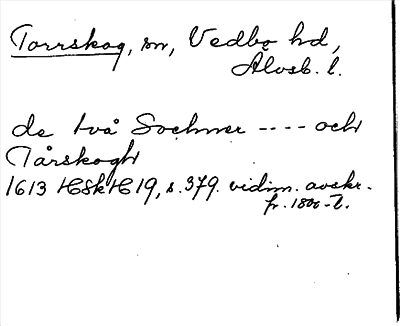 Torrskog, sn, Vedbo hd,
Älvsb. l.
de två Sochner ---- och
Tårskogh
1613 HSkH 19, s. 379. vidim. avskr.
fr. 1800-t.